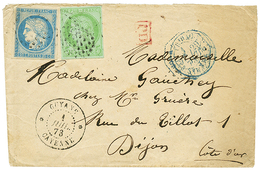 PD
Mademoiselle
Madeleine Gauchey
chez Mr Gruère
Rue du Tillot 1
Dijon
Côte d'or
GUYANE
1
73
CAYENNE